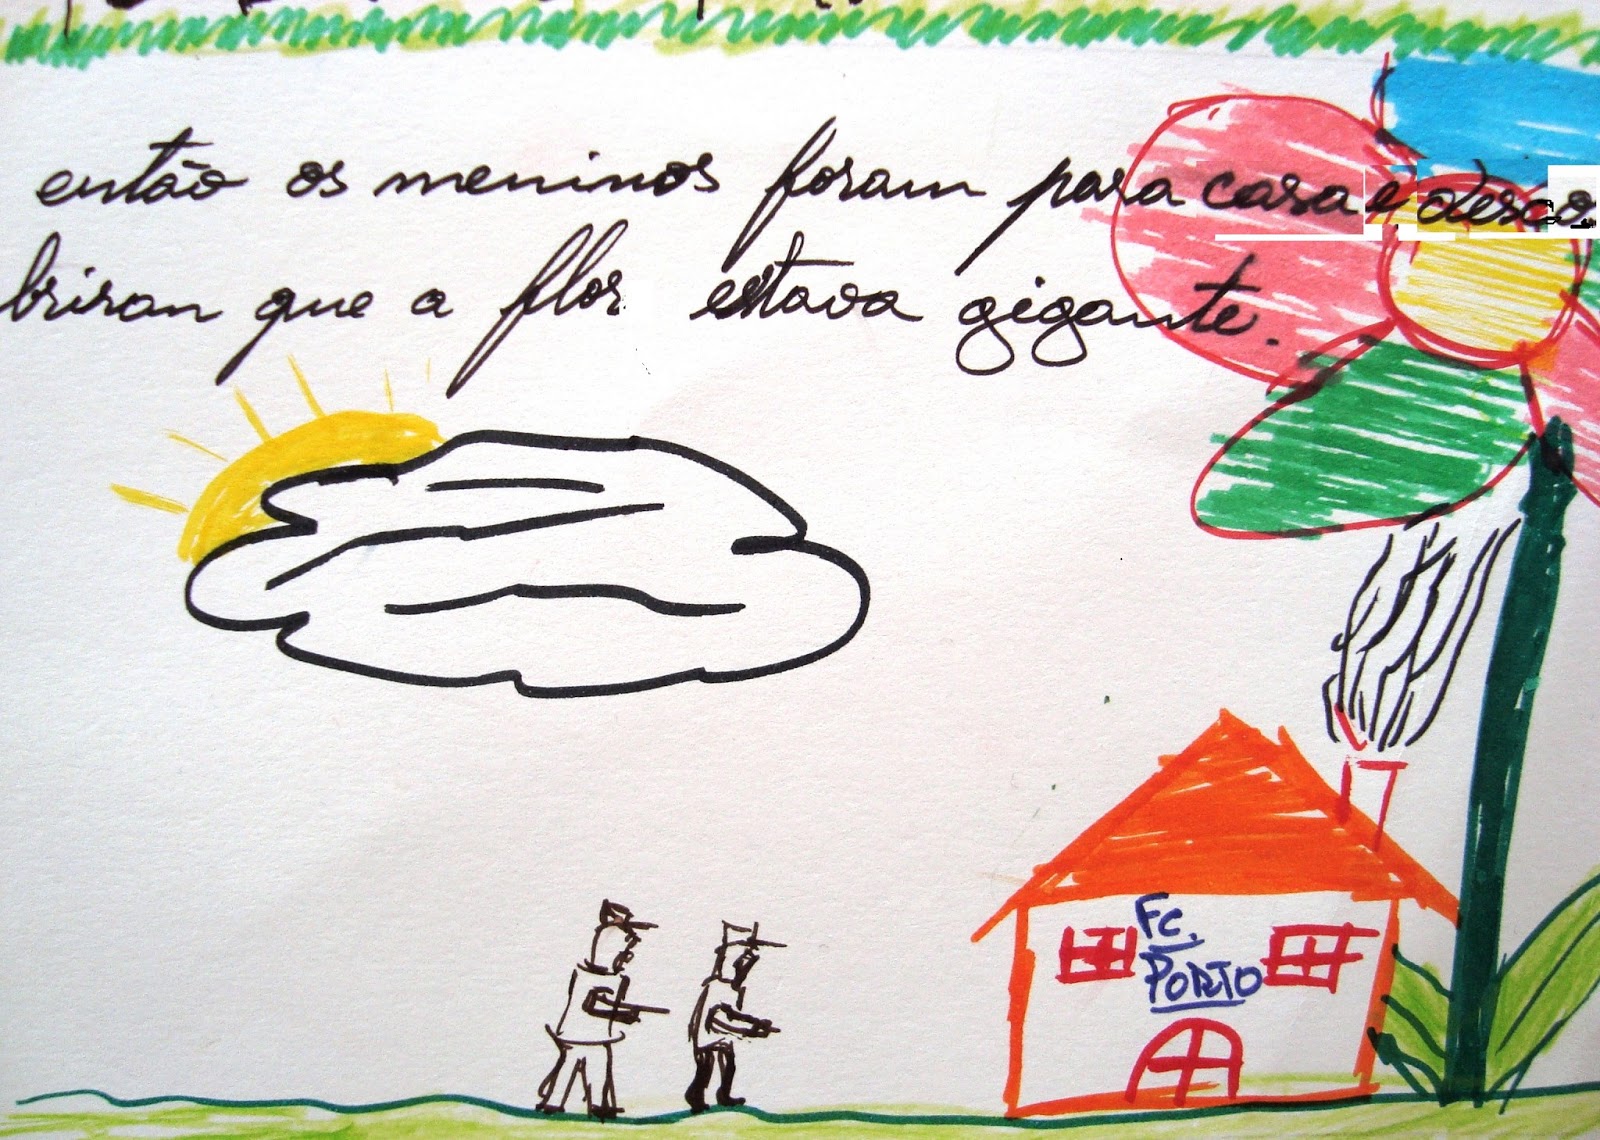 então os meninos foram para casa e desco
briran que a flor estava gigante.
FC.
PORTO